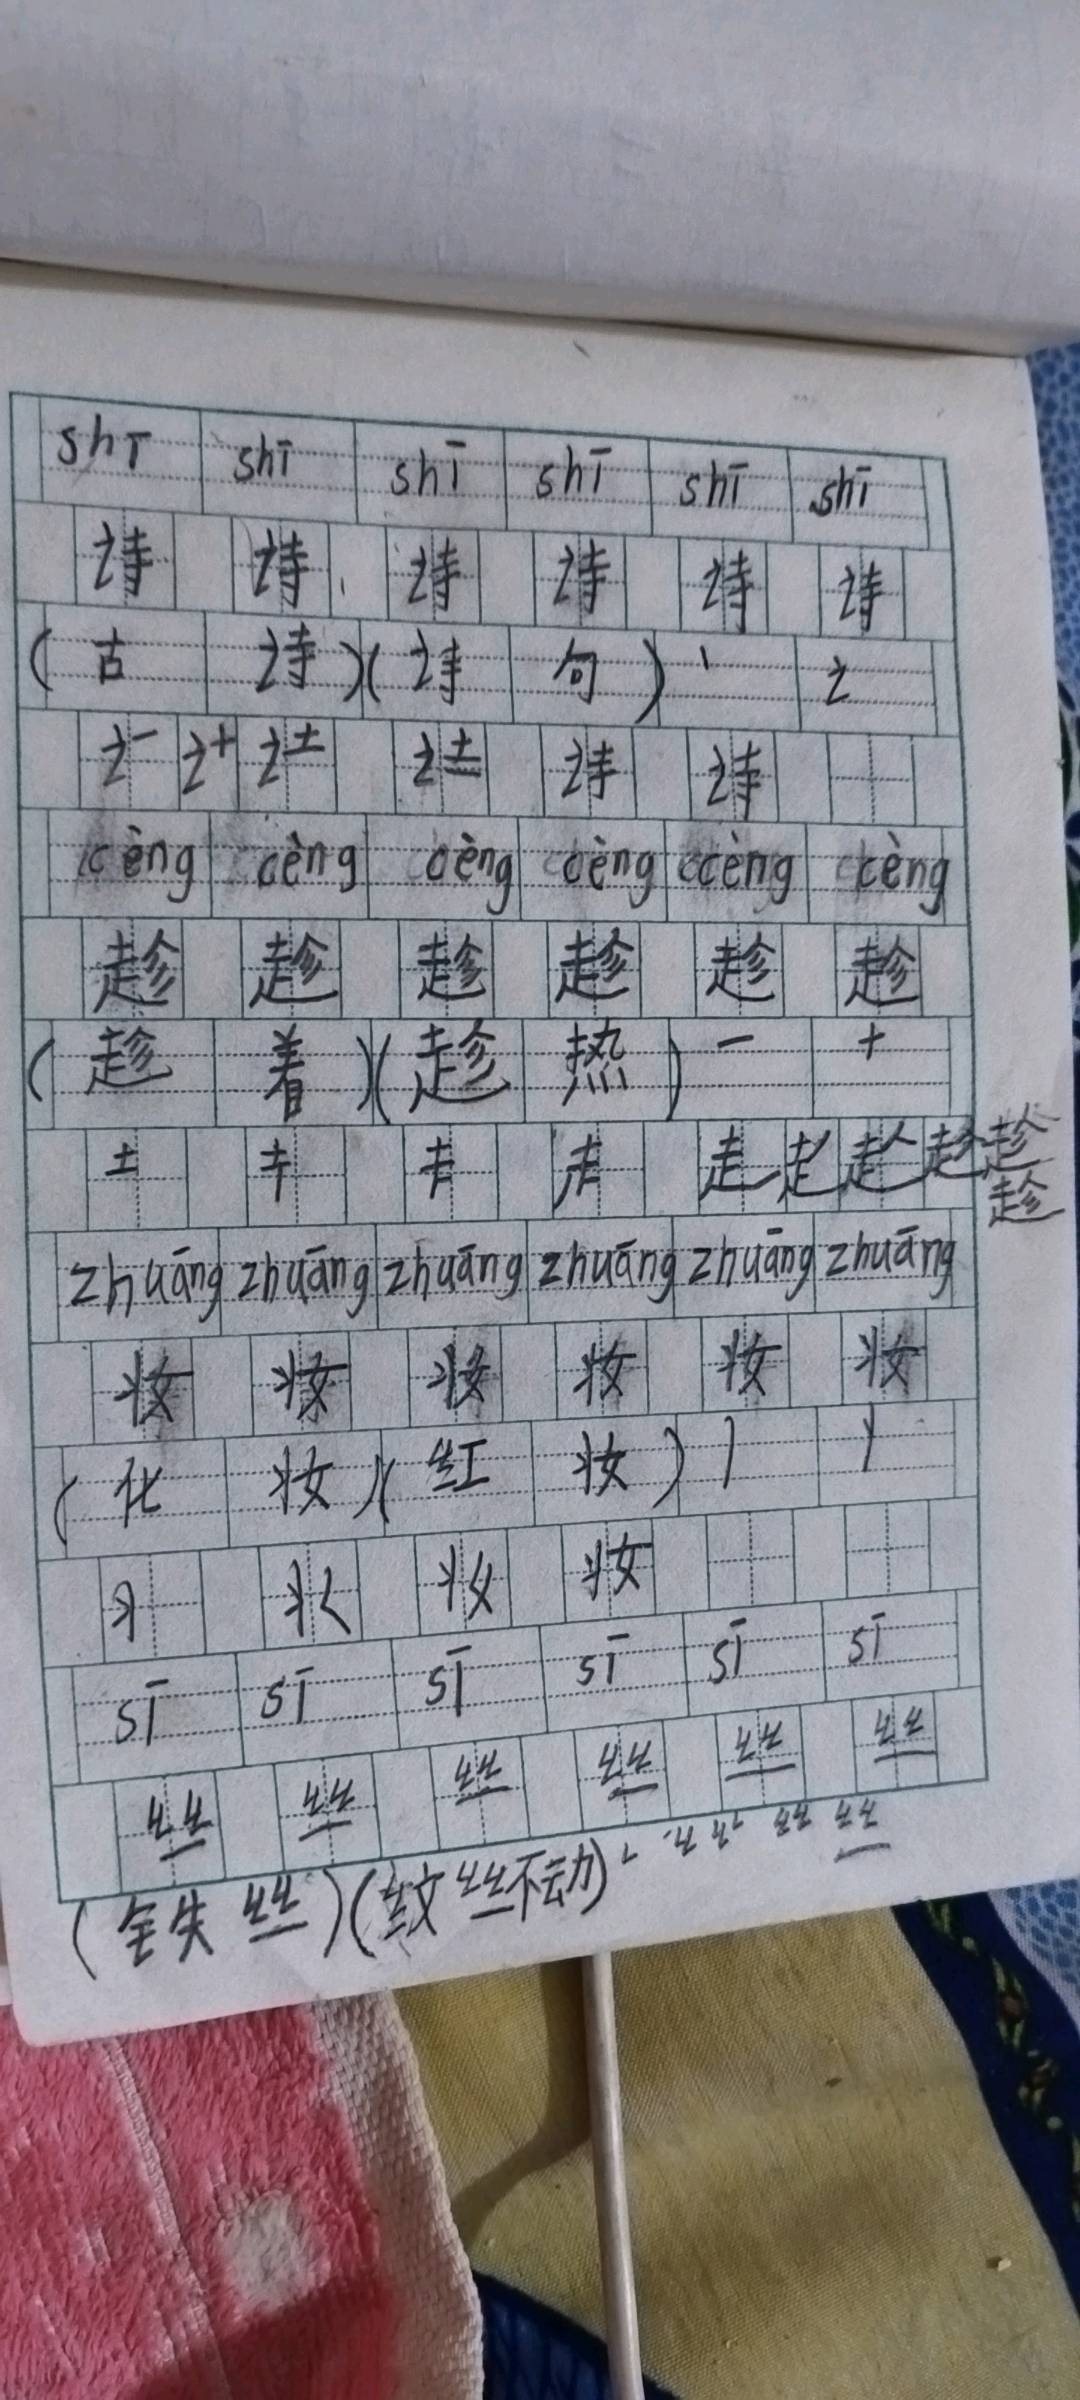 shī shī shī shī shī shī
诗 诗 诗 诗 诗 诗
(古 诗)(诗 句) 丶 讠
诗 诗
cèng cèng cèng cèng cèng cèng
趁 趁 趁 趁 趁 趁
(趁 着)(趁 热) 一 十
土 走 趁
趁
zhuāng zhuāng zhuāng zhuāng zhuāng zhuāng
妆 妆 妆 妆 妆 妆
(化 妆)(红 妆) 丶 丨
丬 妆
sī sī sī sī sī sī
丝 丝 丝 丝 丝 丝
(铁 丝)(纹丝不动) 丝